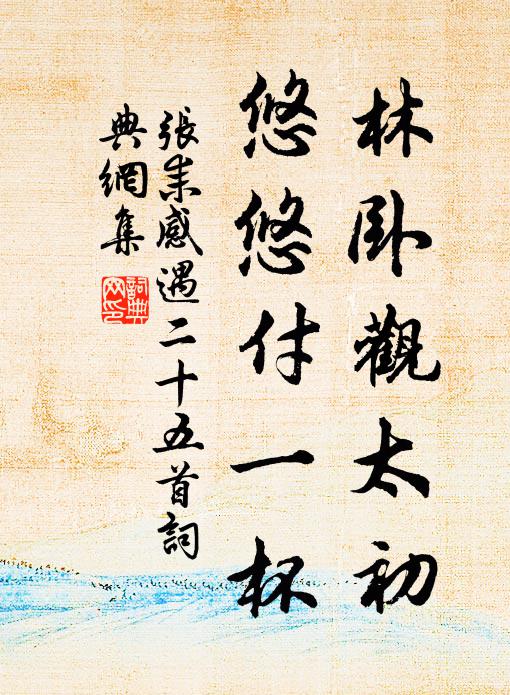 林卧觀太初
悠悠付一杯
張耒感遇二十五首詞
典網集
詞典
网印